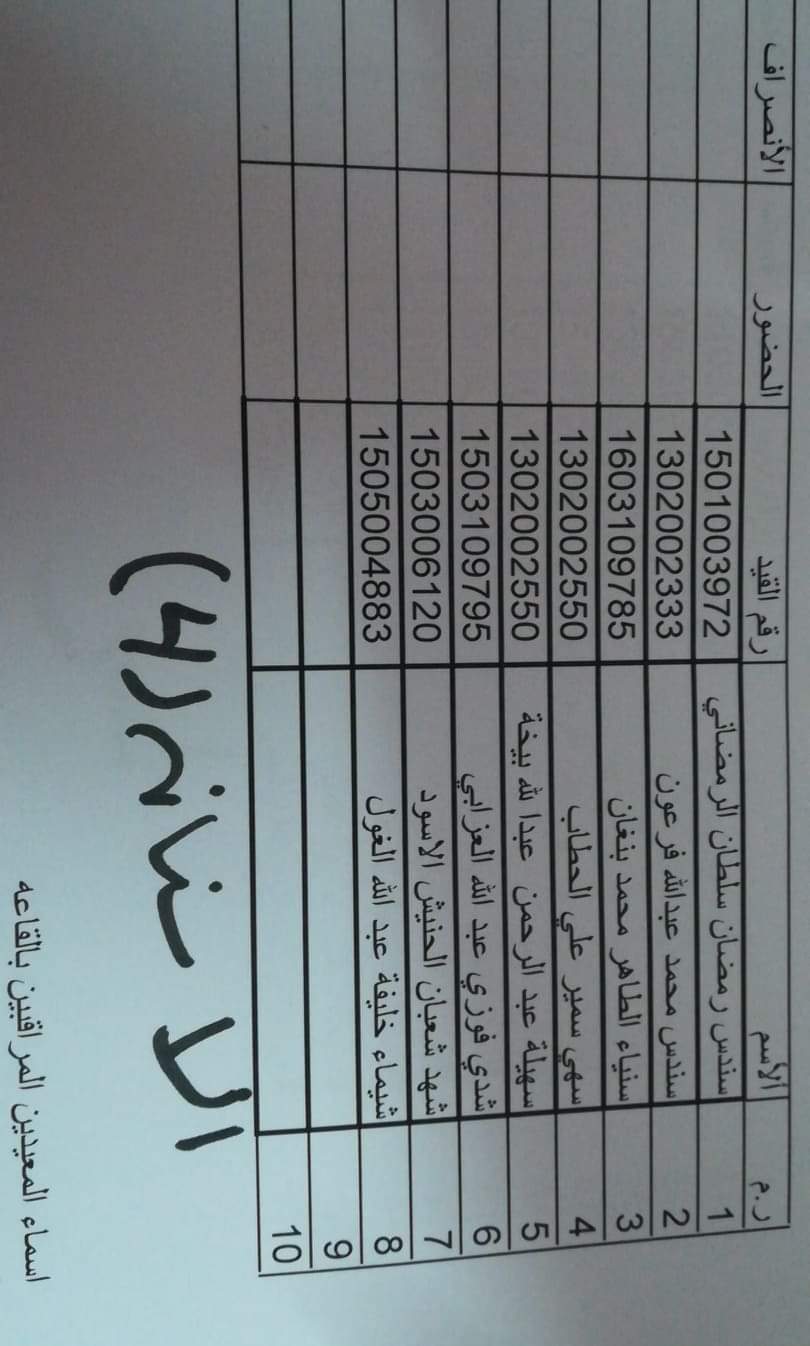 ر.م الأسم رقم القيد الحضور الأنصراف
1 سندس رمضان سلطان الرمضاني 1501003972
2 سندس محمد عبدالله فرعون 1302002333
3 سنياء الطاهر محمد بنغان 1603109785
4 سهي سمير علي الحطاب 1302002550
5 سهيلة عبد الرحمن عبدا لله بيخة 1302002550
6 شدي فوزي عبد الله العزابي 1503109795
7 شهد شعبان الحنيش الاسود 1503006120
8 شيماء خليفة عبد الله الغول 1505004883
9
10
(4)
اسماء المعيدين المراقبين بالقاعه